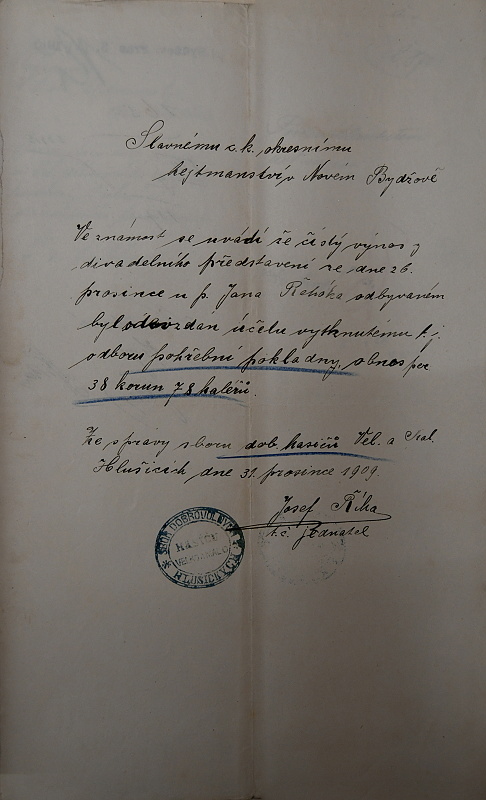 Slavnému c. k. okresnímu
hejtmanství v Novém Bydžově
Ve známost se uvádí že čistý výnos z
divadelního představení ze dne 26.
prosince u p. Jana Řeháka odbyvaném
byl odevzdán účelu vytknutému t. j.
odboru pohřební pokladny, obnos per
38 korun 78 haléřů.
Ze správy sboru dob. hasičů Vel. a Mal.
Hlušicích dne 31. prosince 1909.
Josef Říha
t. č. jednatel
SBOR DOBROVOLNÝCH
HASIČŮ
HLUŠICKÝCH